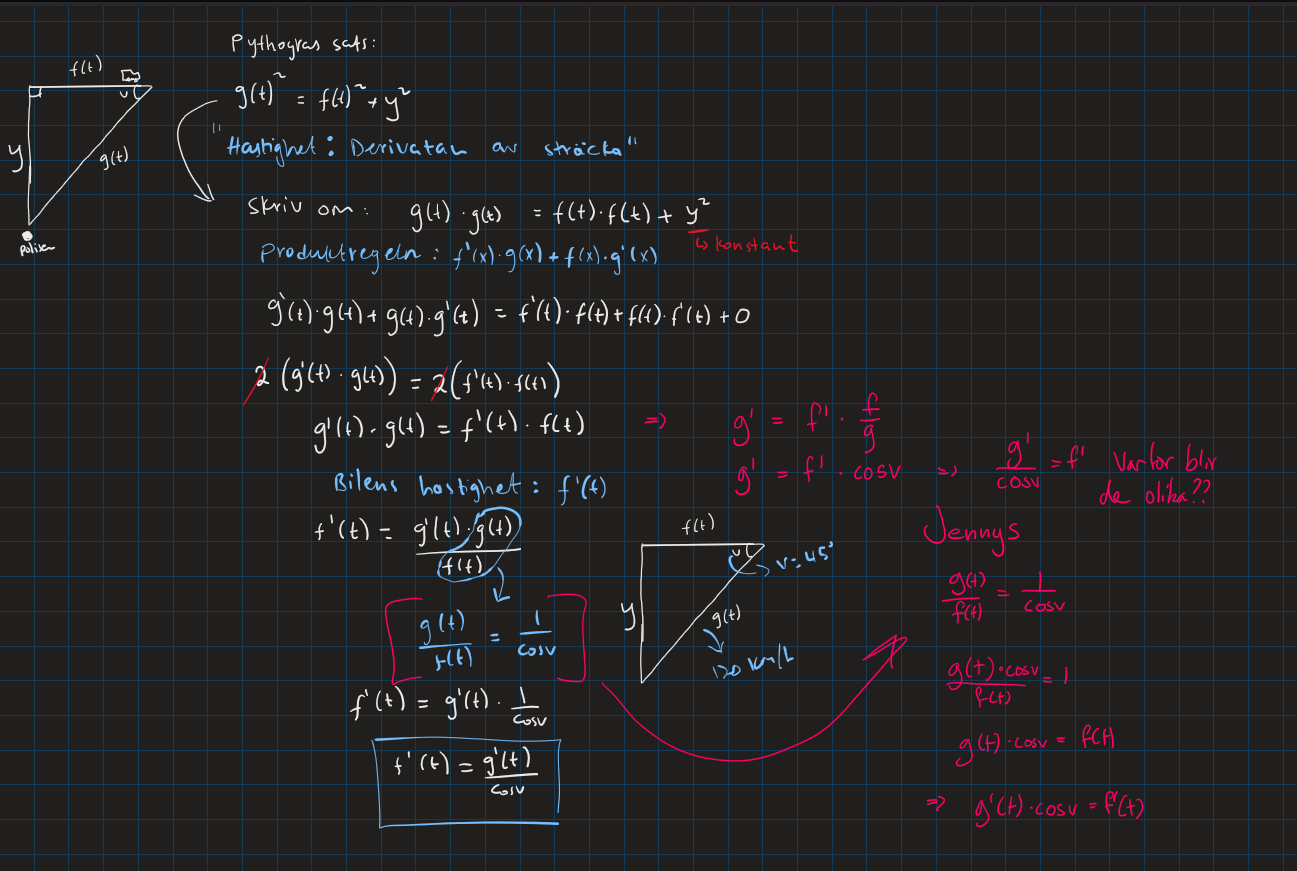 Pythogras sats:
f(t)
v
y
g(t)
polisen
g(t)² = f(t)² + y²
"Hastighet: Derivatan av sträcka"
Skriv om: g(t) · g(t) = f(t) · f(t) + y²
↳ konstant
Produktregeln: f'(x)·g(x) + f(x)·g'(x)
g'(t)·g(t) + g(t)·g'(t) = f'(t)·f(t) + f(t)·f'(t) + 0
2 (g'(t) · g(t)) = 2 (f'(t) · f(t))
g'(t) · g(t) = f'(t) · f(t)
⇒ g' = f' · f/g
g' = f' · cosv ⇒ g'/cosv = f' Varför blir
de olika??
Bilens hastighet: f'(t)
f'(t) = g'(t) · g(t) / f(t)
g(t)/f(t) = 1/cosv
f'(t) = g'(t) · 1/cosv
f'(t) = g'(t)/cosv
f(t)
v
v = 45°
y
g(t)
120 km/h
Jennys
g(t)/f(t) = 1/cosv
g(t)·cosv/f(t) = 1
g(t)·cosv = f(t)
⇒ g'(t)·cosv = f'(t)